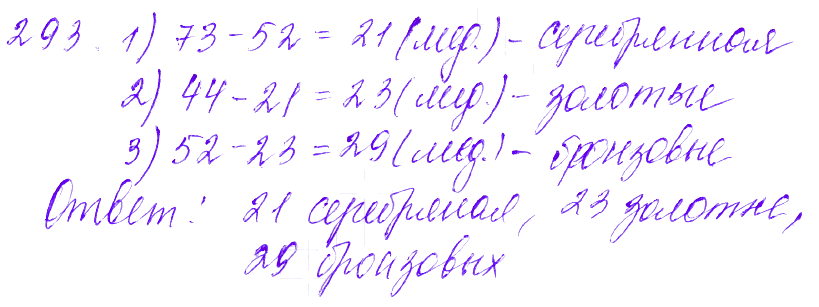 293. 1) 73 - 52 = 21 (мед.) - серебрянная
2) 44 - 21 = 23 (мед.) - золотые
3) 52 - 23 = 29 (мед.) - бронзовые
Ответ: 21 серебряная, 23 золотые,
29 бронзовых